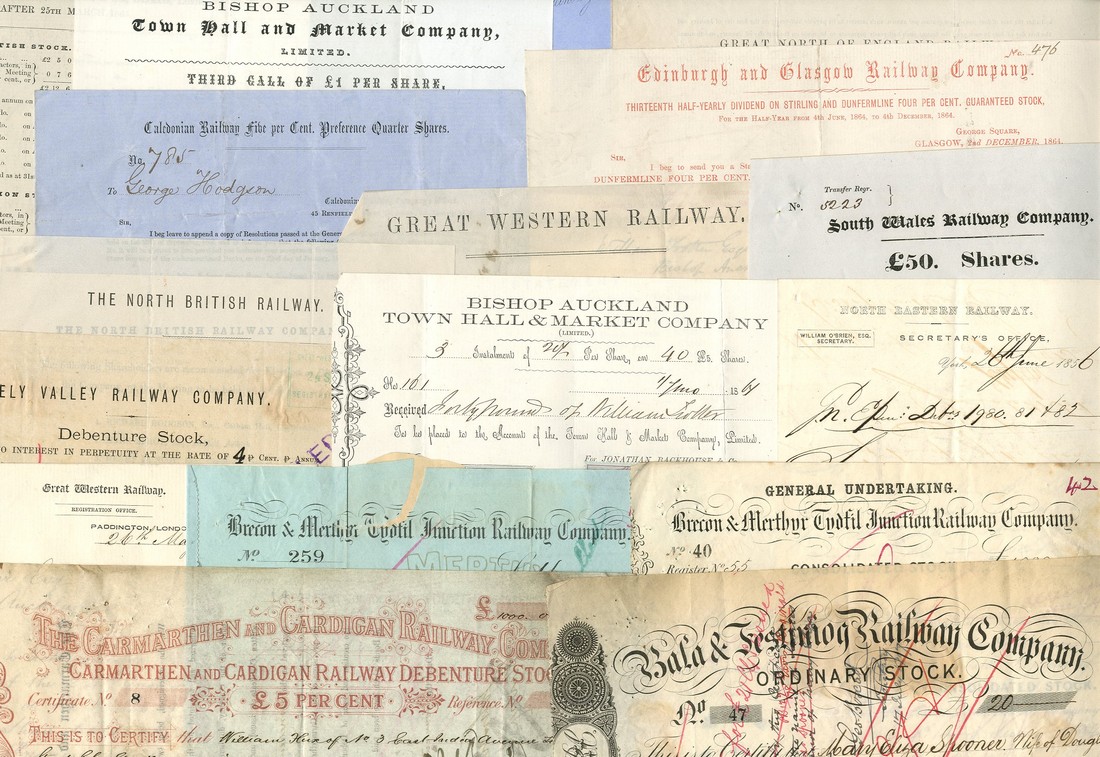 AFTER 25TH
TISH STOCK.
£2 5 0
Meeting
0 7 6
cent., or
BISHOP AUCKLAND
Town Hall and Market Company,
LIMITED.
THIRD CALL OF £1 PER SHARE.
GREAT NORTH OF ENGLAND
No. 476
Edinburgh and Glasgow Railway Company.
THIRTEENTH HALF-YEARLY DIVIDEND ON STIRLING AND DUNFERMLINE FOUR PER CENT. GUARANTEED STOCK,
FOR THE HALF-YEAR FROM 4TH JUNE, 1864, TO 4TH DECEMBER, 1864.
GEORGE SQUARE,
GLASGOW, 2nd DECEMBER, 1864.
SIR,
I beg to send you a
DUNFERMLINE FOUR PER CENT.
Caledonian Railway Five per Cent. Preference Quarter Shares.
No. 785
To George Hodgson
45 RENFIEL
SIR,
I beg leave to append a copy of Resolutions passed at the Gener
GREAT WESTERN RAILWAY.
Transfer Regr.
No. 5223
South Wales Railway Company.
£50. Shares.
THE NORTH BRITISH RAILWAY.
THE NORTH BRITISH RAILWAY COMPA
BISHOP AUCKLAND
TOWN HALL & MARKET COMPANY
(LIMITED.)
3 Instalment of 20/ Per Share, on 40 £5. Shares.
No 101
Received Forty Pounds of William
To be placed to the Account of the Town Hall & Market Company, Limited.
For JONATHAN BACKHOUSE & Co
NORTH EASTERN RAILWAY.
WILLIAM O'BRIEN, ESQ.
SECRETARY.
SECRETARY'S OFFICE,
York, 26th June 1856
1980. 81 & 82
ELY VALLEY RAILWAY COMPANY.
Debenture Stock,
O INTEREST IN PERPETUITY AT THE RATE OF 4 P CENT. P ANNU
Great Western Railway.
REGISTRATION OFFICE.
PADDINGTON, LONDO
26th Ma
Brecon & Merthyr Tydfil Junction Railway Company.
No 259
MERTH
GENERAL UNDERTAKING.
42
Brecon & Merthyr Tydfil Junction Railway Company.
No 40
Register No 55
CONSOLIDATED STOCK
£ 1000
THE CARMARTHEN AND CARDIGAN RAILWAY COM
CARMARTHEN AND CARDIGAN RAILWAY DEBENTURE STOC
Certificate. No 8
£5 PER CENT
Reference. No
THIS IS TO CERTIFY that William of No 3 East India Avenue
Bala & Festiniog Railway Company.
ORDINARY STOCK.
No 47
20
This is to Certify that Mary Eliza Spooner, Wife of Dougl